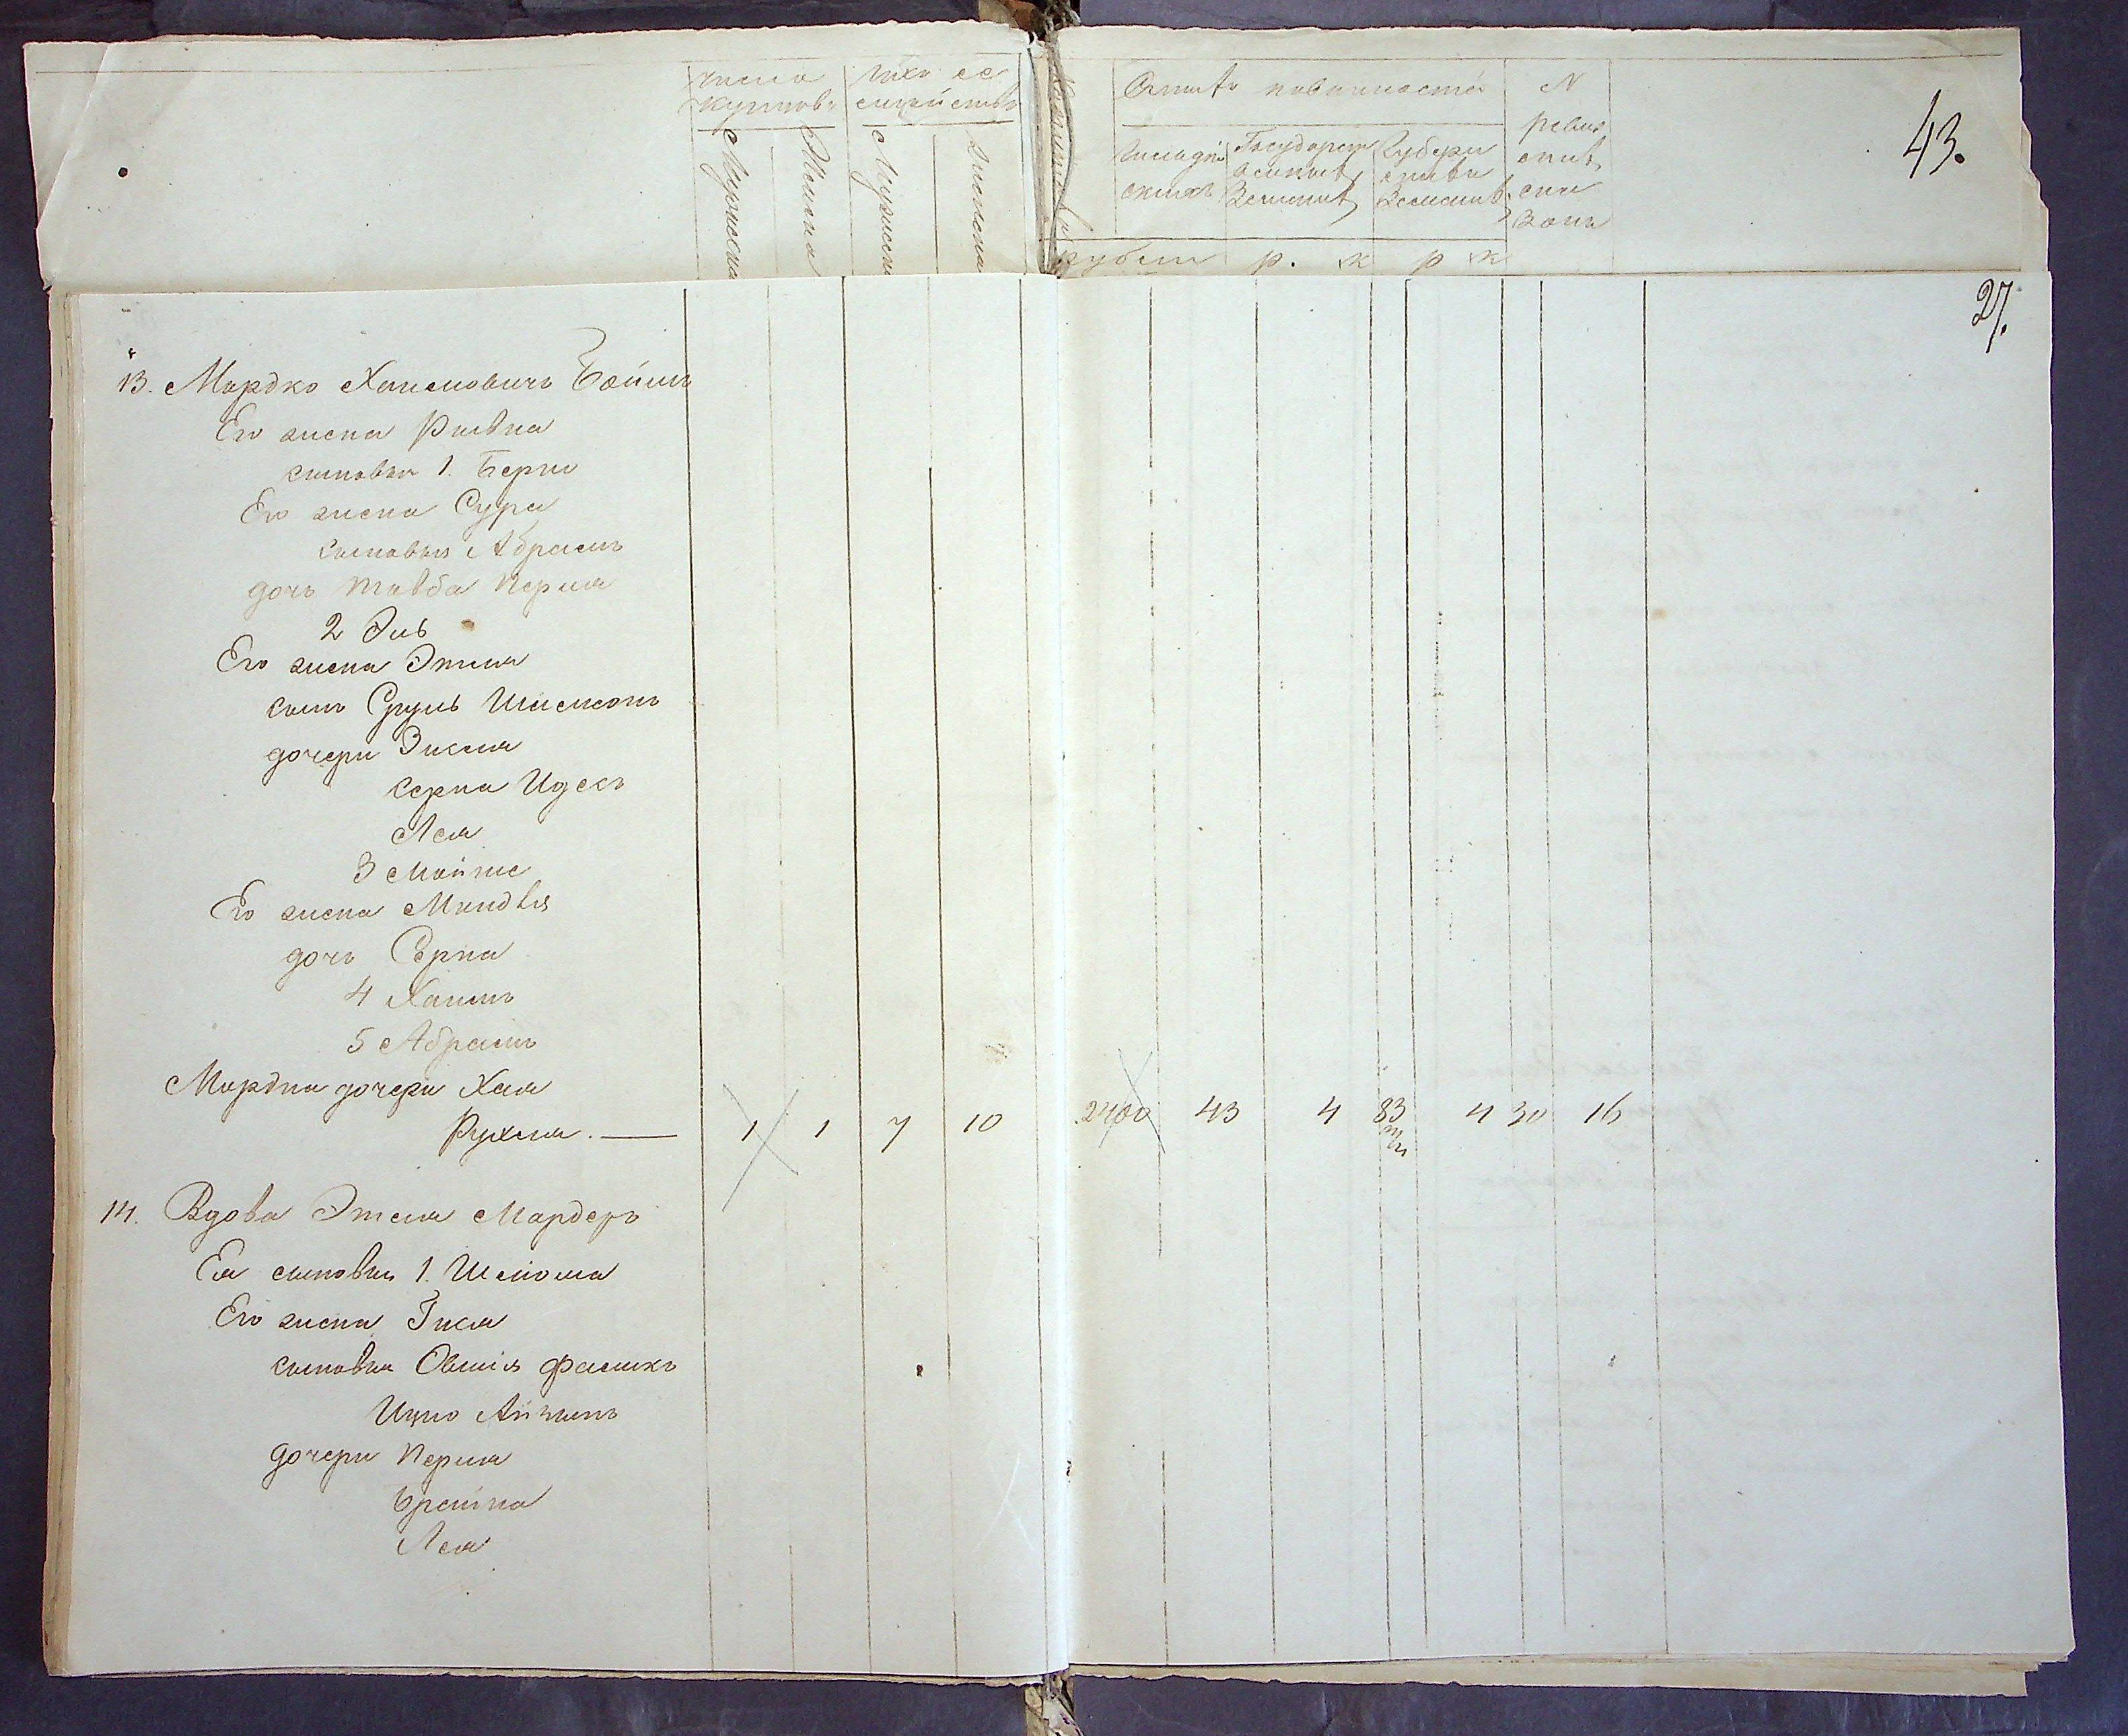 число купцовъ
Мужска
Женска
ихъ се семействъ
Мужеска
Женска
Платятъ повинностей
Гильдейскихъ
Государственныхъ Земскихъ
Губернскихъ Земскихъ
рубли р. к р к
N ревиз
43.
27.
13. Мордко Хаимовичъ Бойм
Его жена Ривка
сыновья 1. Берко
Его жена Сура
сыновья Абрамъ
дочь Тавба Перля
2 Эль
Его жена Этля
сынъ Сруль Шлемонъ
дочери Эйсля
Серна Идесъ
Лея
3 Мойше
Его жена Миндля
дочь Серна
4 Хаимъ
5 Абрамъ
Мордка дочери Хая
Рухля. — 1 1 7 10 2400 43 4 83 4 30 16
14. Вдова Этля Мардеръ
Ея сыновья 1. Шлиома
Его жена Гися
сыновья Овшія Файликъ
Ицко Айзикъ
дочери Перля
Брайна
Лея